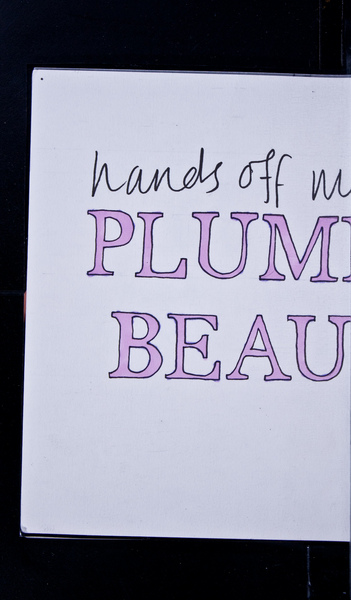 hands off m
PLUM
BEAU